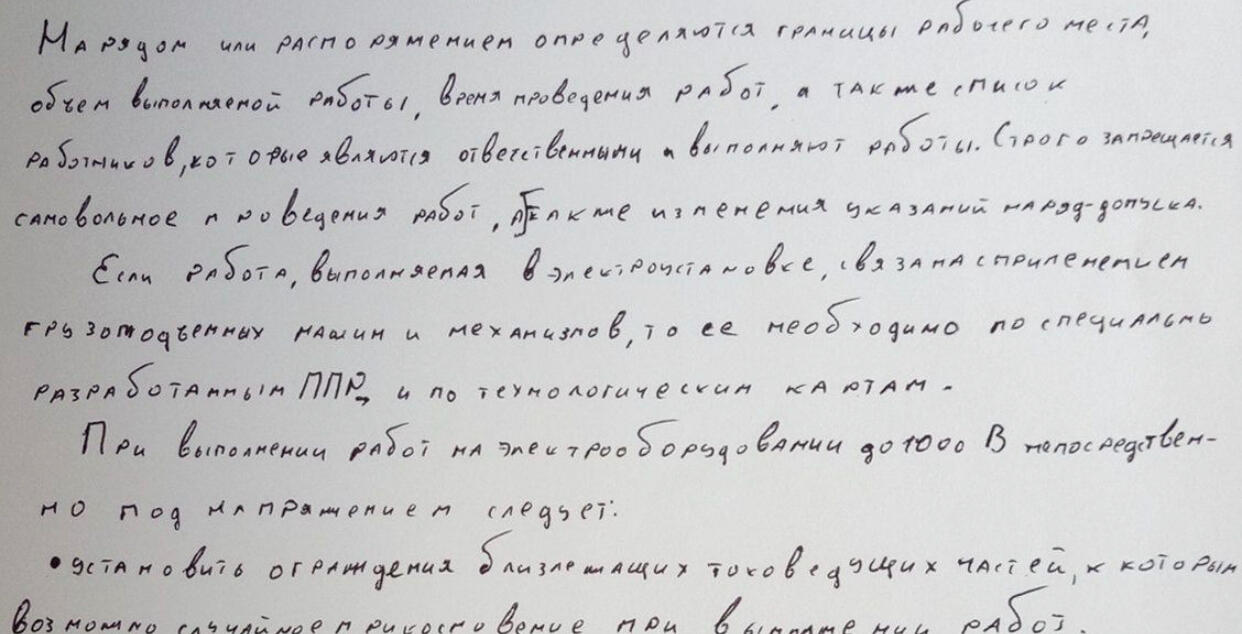 Нарядом или распоряжением определяются границы рабочего места,
объем выполняемой работы, время проведения работ, а также список
работников, которые являются ответственными и выполняют работы. Строго запрещается
самовольное проведения работ, а также изменения указаний наряд-допуска.
Если работа, выполняемая в электроустановке, связана с применением
грузоподъемных машин и механизмов, то ее необходимо по специально
разработанным ППР, и по технологическим картам.
При выполнении работ на электрооборудовании до 1000 В непосредствен-
но под напряжением следует:
• установить ограждения близлежащих токоведущих частей, к которым
возможно случайное прикосновение при выполнении работ.